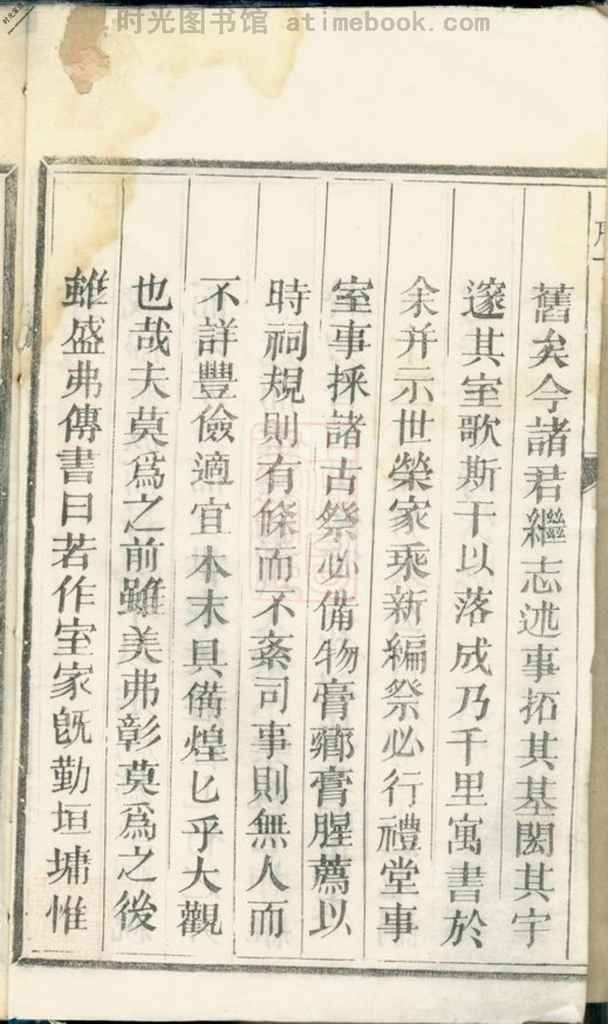 时光图书馆 atimebook.com
舊矣今諸君繼志述事拓其基閎其宇
邃其室歌斯干以落成乃千里寓書於
余并示世榮家乘新編祭必行禮堂事
室事採諸古祭必備物膏薌膏腥薦以
時祠規則有條而不紊司事則無人而
不詳豐儉適宜本末具備煌匕乎大觀
也哉夫莫爲之前雖美弗彰莫爲之後
雖盛弗傳書曰若作室家旣勤垣墉惟